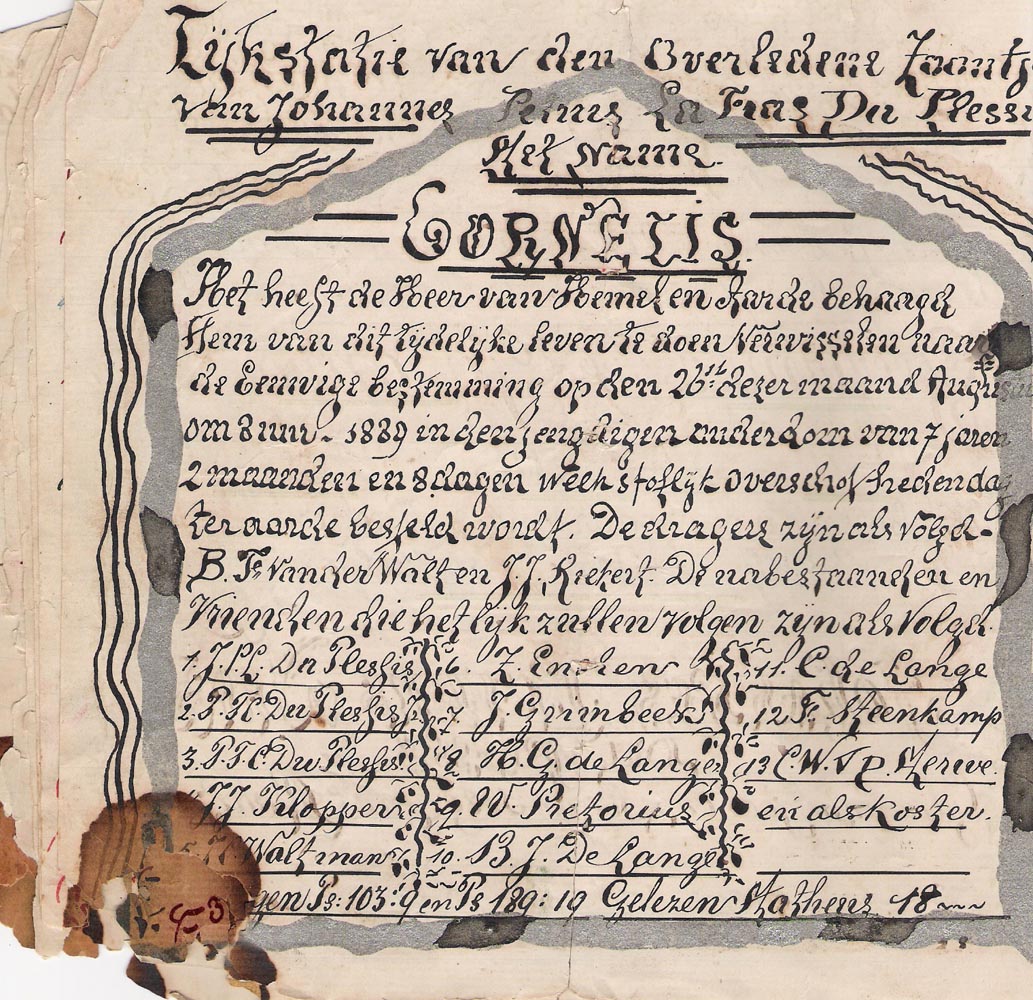 Lijkstatie van den Overledene Zoontj
van Johannes Petrus La Fras Du Plessi
Met name.
CORNELIS
Het heeft de Heer van Hemel en Aarde behaagd
Hem van dit tijdelijke leven te doen Verwisselen naar
de Eeuwige bestemming op den 26ste dezer maand Augus
om 8 uur - 1889 in den jeugdigen ouderdom van 7 jaren
2 maanden en 8 dagen Welk stoflijk overschot heden dag
ter aarde besteld wordt. De dragers zijn als Volgd-
B. F. Van der Walt en J. J. Riekert. De nabestaanden en
Vrienden die het lijk zullen volgen zijn als Volgd.
1. J. P. L. Du Plessis 6. Z. 11. C. de Lange
2. P. H. Du Plessis 7 J. Grimbeek 12 F. Steenkamp
3. P. J. C. Du Plessis 8 H. G. de Lange 13 C. W. v d Merwe.
J. J. Klopper 9. W. Pretorius en als koster.
Waltman 10. B J. De Lange
gen Ps: 103: 9 en Ps 189: 19 Gelezen Matheus 18